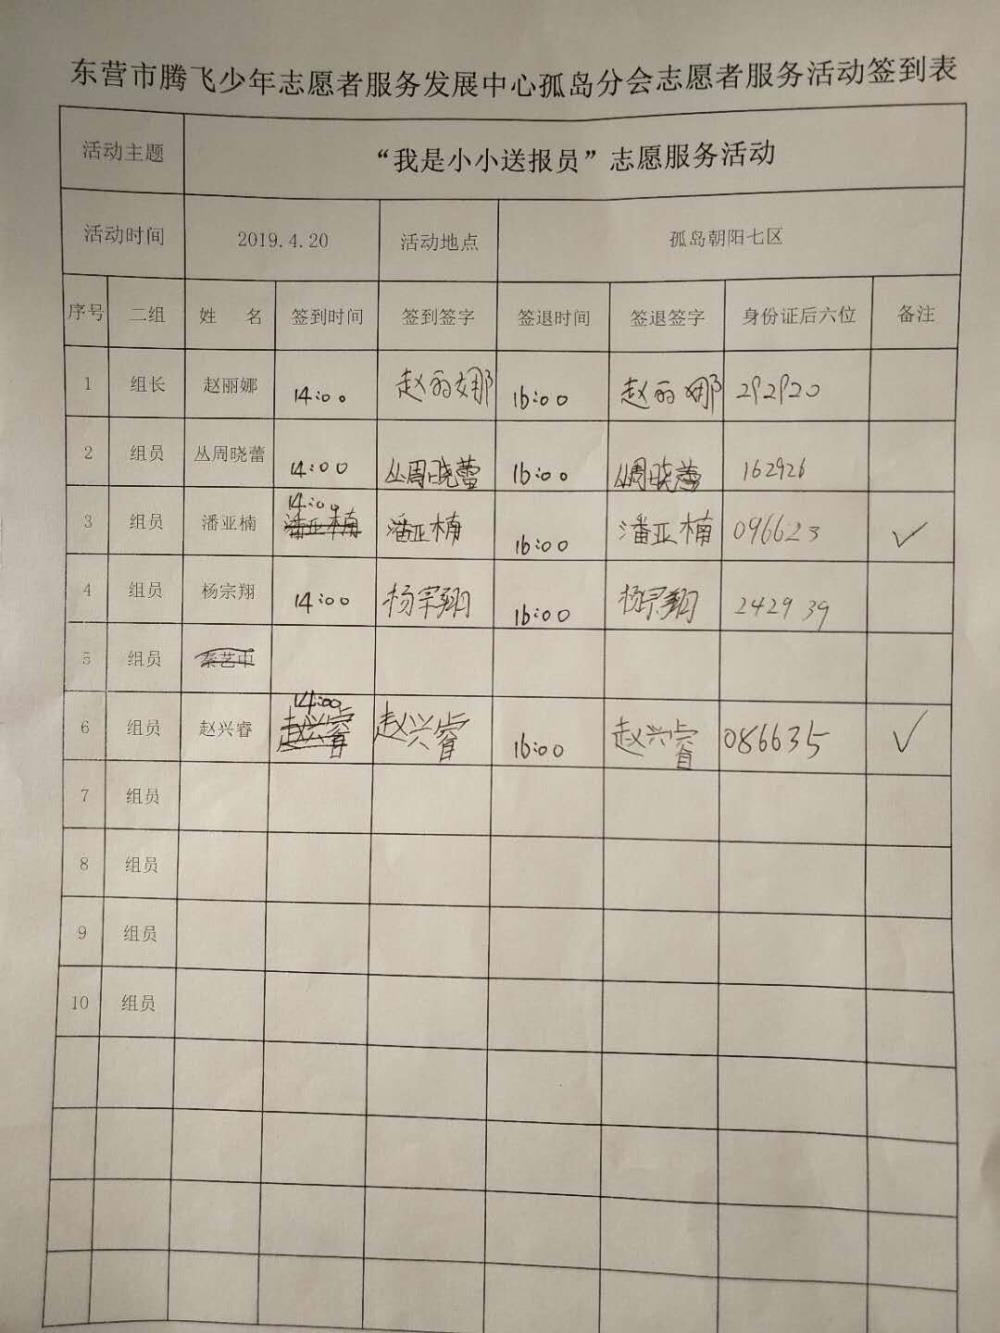 东营市腾飞少年志愿者服务发展中心孤岛分会志愿者服务活动签到表
活动主题 “我是小小送报员”志愿服务活动
活动时间 2019.4.20 活动地点 孤岛朝阳七区
序号 二组 姓 名 签到时间 签到签字 签退时间 签退签字 身份证后六位 备注
1 组长 赵丽娜 14:00 赵丽娜 16:00 赵丽娜 292920
2 组员 丛周晓蕾 14:00 丛周晓蕾 16:00 丛周晓蕾 162926
14:00
3 组员 潘亚楠 潘亚楠 潘亚楠 16:00 潘亚楠 096623 ✓
4 组员 杨宗翔 14:00 杨宗翔 16:00 杨宗翔 242939
5 组员
14:00
6 组员 赵兴睿 赵兴睿 赵兴睿 16:00 赵兴睿 086635 ✓
7 组员
8 组员
9 组员
10 组员